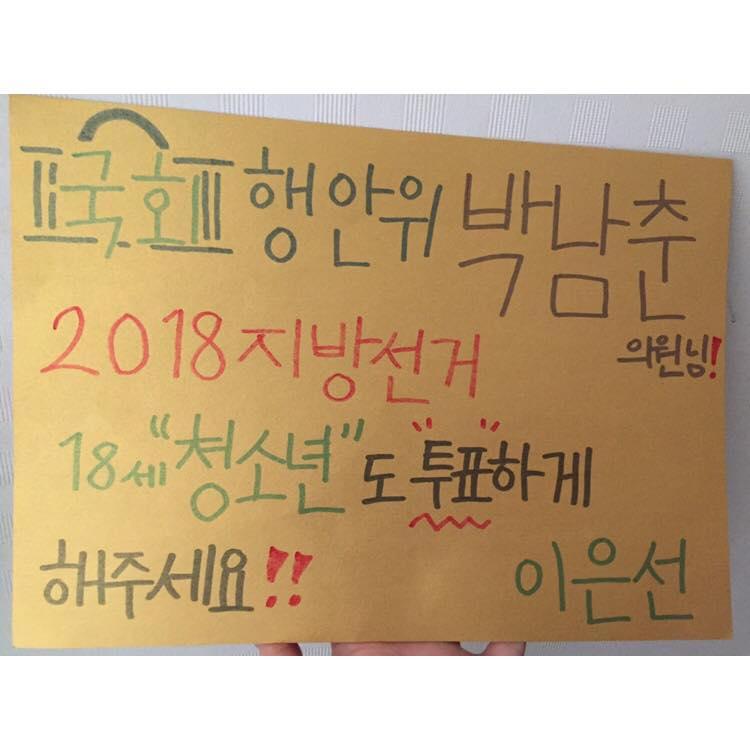 국회 행안위 박남춘
의원님!
2018 지방선거
18세 "청소년"도 "투표"하게
해주세요!!
이은선